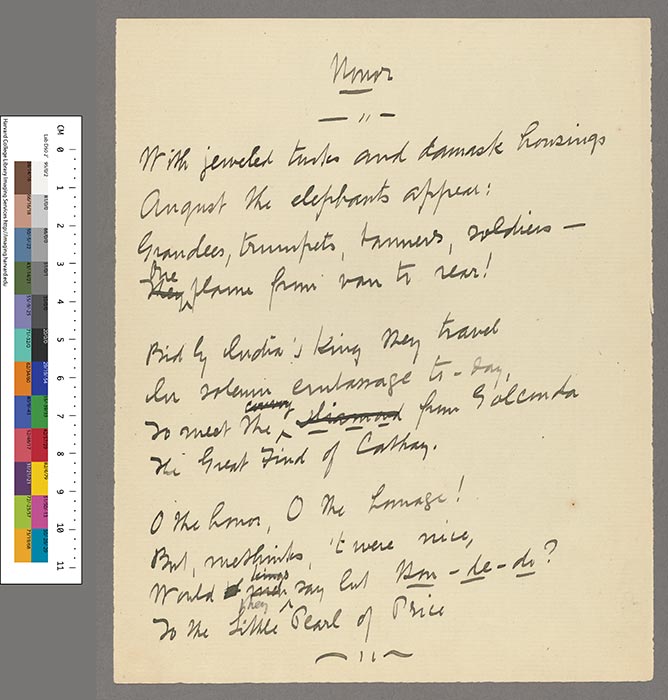 Honor
With jeweled tusks and damask housings
August the elephants appear:
Grandees, trumpets, banners, soldiers —
One
flame from van to rear!
Bid by India's King they travel
In solemn embassage to-day,
To meet the diamond from Golconda
The Great Find of Cathay.
O the honor, O the homage!
But, methinks, 't were nice,
kings
Would say but How-de-do?
they
To the Little Pearl of Price
CM 0 1 2 3 4 5 6 7 8 9 10 11
Harvard College Library Imaging Services http://imaging.harvard.edu